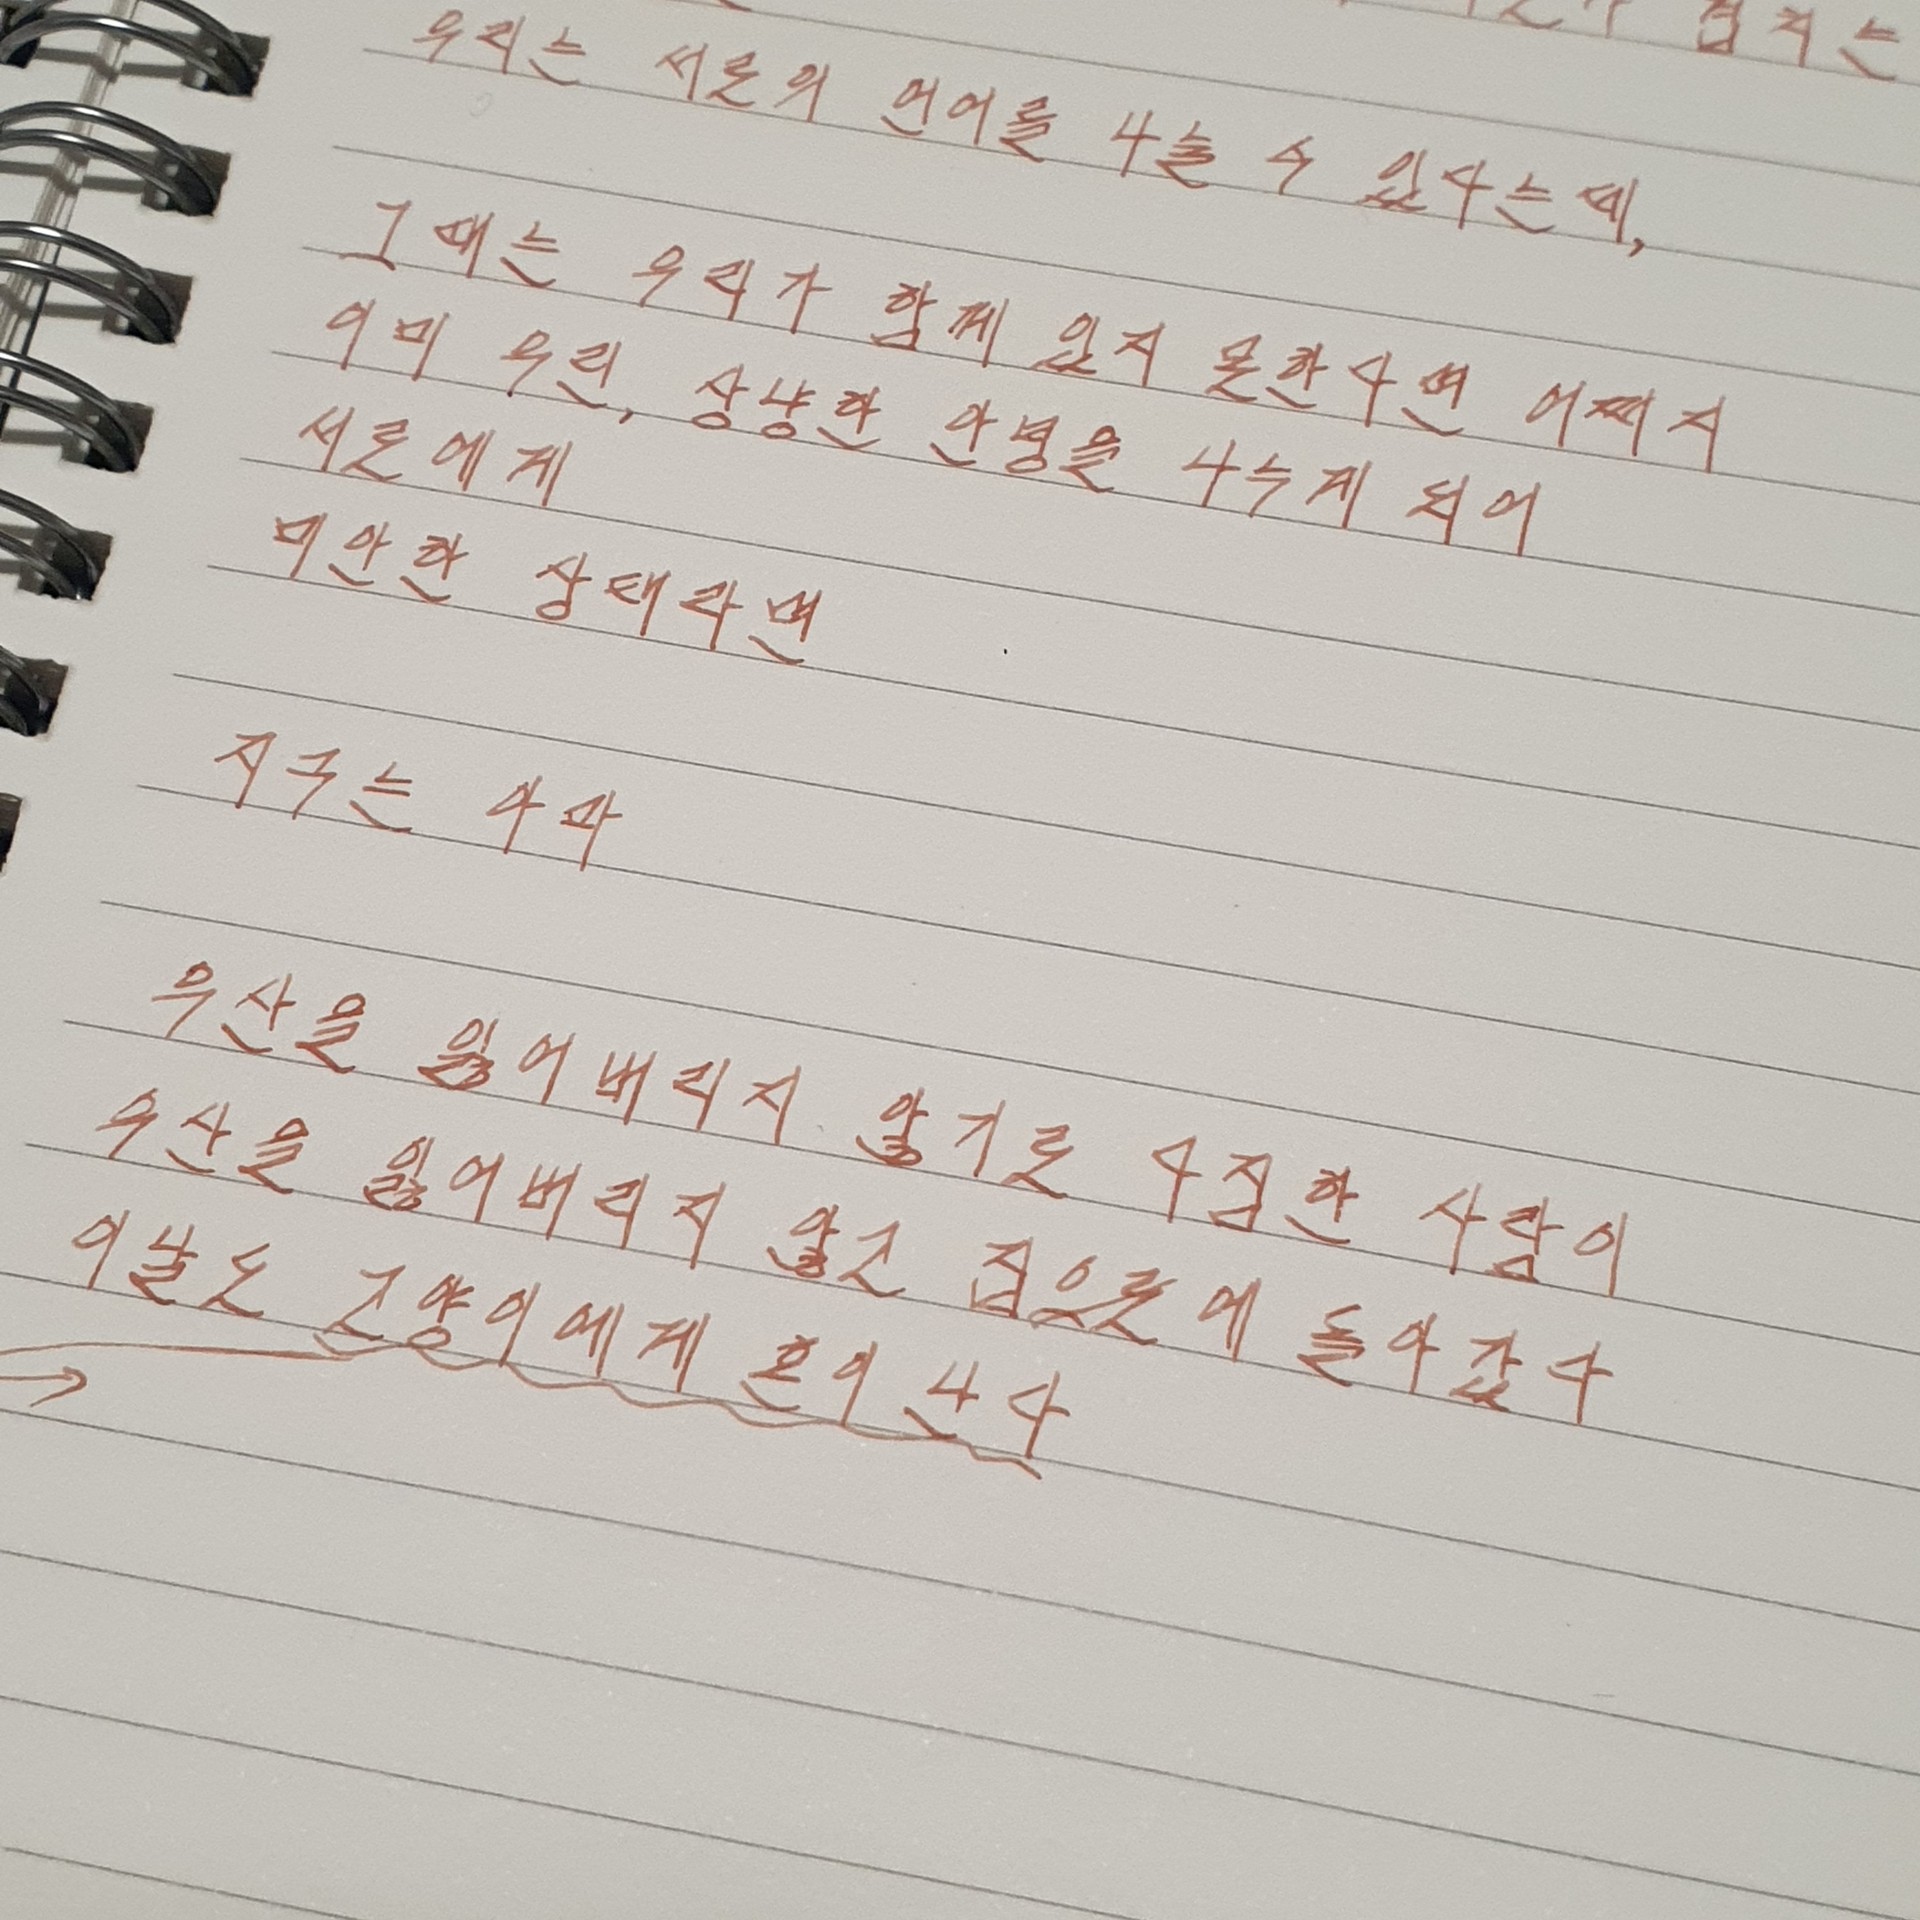 겹치는
우리는 서로의 언어를 나눌 수 있다는데,
그때는 우리가 함께 있지 못한다면 어쩌지
이미 우린, 상냥한 안녕을 나누게 되어
서로에게
미안한 상태라면
지구는 아마
우산을 잃어버리지 않기로 다짐한 사람이
우산을 잃어버리지 않고 집으로에 돌아갔다
이날도 고양이에게 혼이 난다